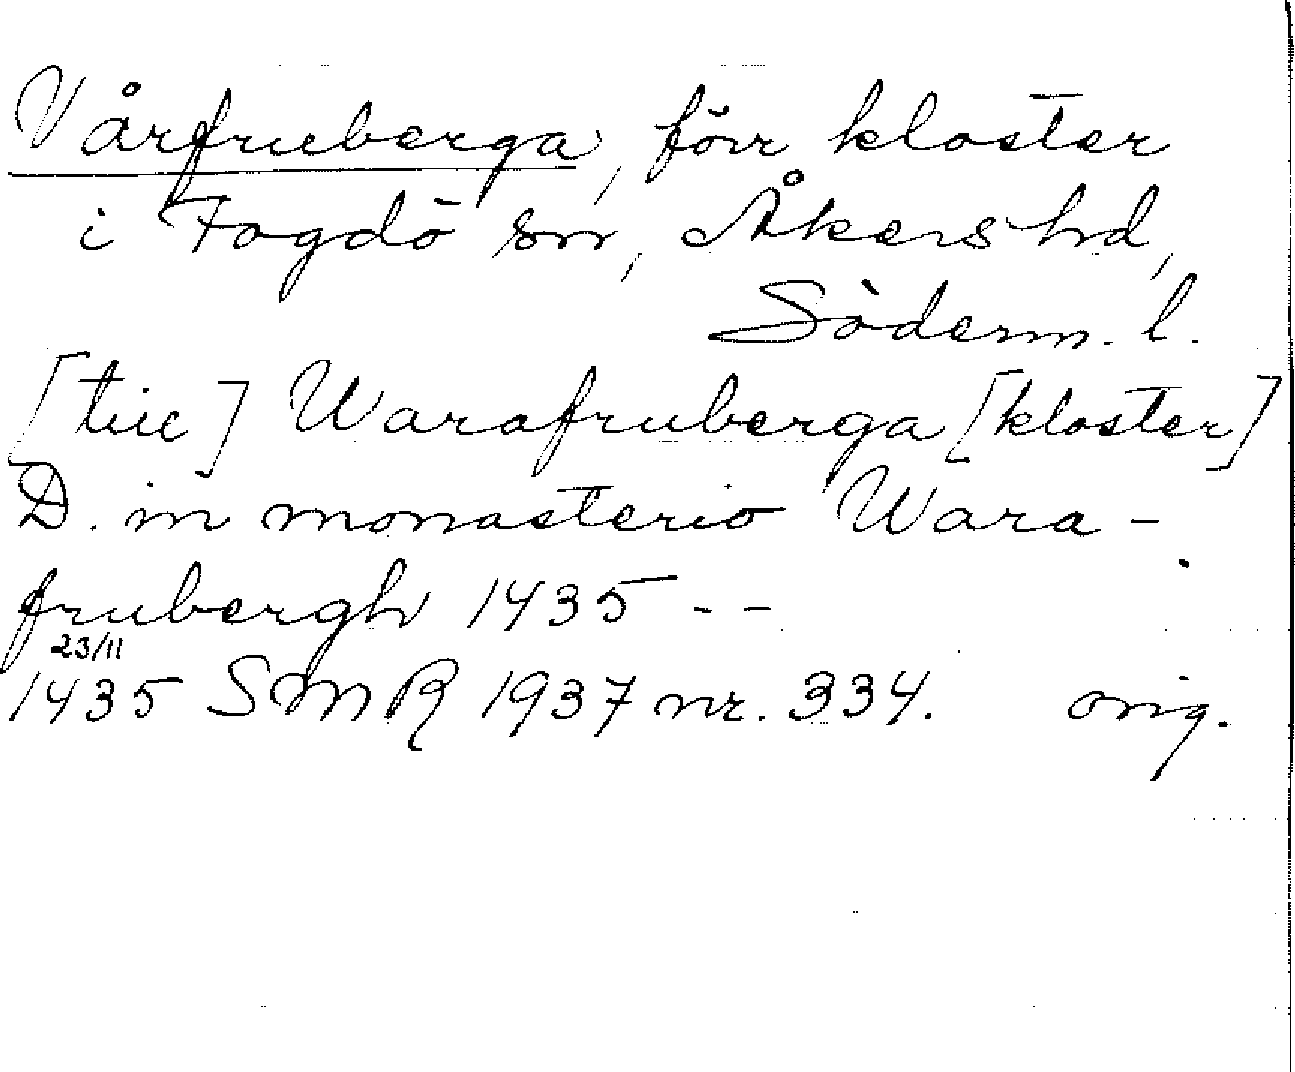 Vårfruberga, förr kloster
i Fogdö sn, Åkers hd,
Söderm. l.
[till] Warafruberga [kloster]
D. in monasterio Wara-
frubergh 1435 - -
23/11
1435 SMR 1937 nr. 334. orig.